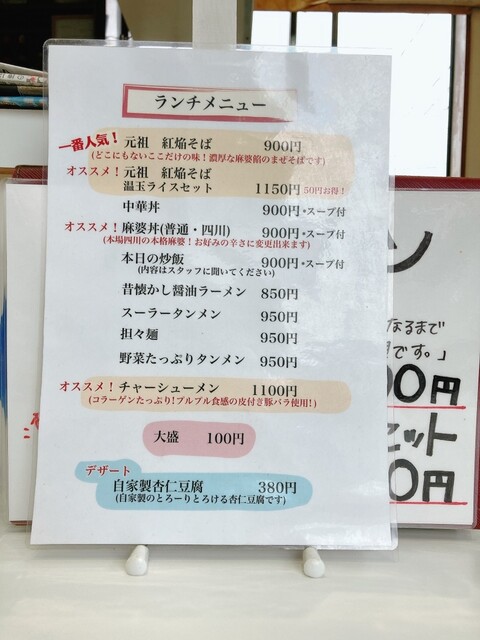 ランチメニュー
一番人気！ 元祖 紅焔そば 900円
(どこにもないここだけの味！濃厚な麻婆餡のまぜそばです)
オススメ！ 元祖 紅焔そば
温玉ライスセット 1150円 50円お得！
中華丼 900円・スープ付
オススメ！ 麻婆丼(普通・四川) 900円・スープ付
(本場四川の本格麻婆！お好みの辛さに変更出来ます)
本日の炒飯 900円・スープ付
(内容はスタッフに聞いてください)
昔懐かし醤油ラーメン 850円
スーラータンメン 950円
担々麺 950円
野菜たっぷりタンメン 950円
オススメ！ チャーシューメン 1100円
(コラーゲンたっぷり！プルプル食感の皮付き豚バラ使用！)
大盛 100円
デザート
自家製杏仁豆腐 380円
(自家製のとろーりとろける杏仁豆腐です)
なるまで
です。」
00円
セット
0円